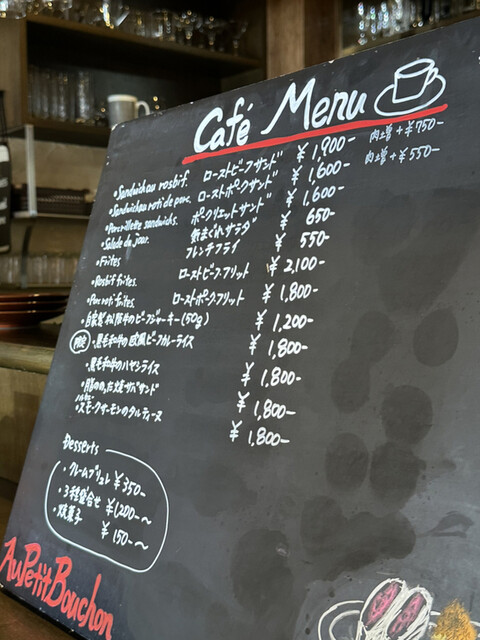 Café Menu
・Sandwich au rosbif. ローストビーフサンド ¥1,900- 肉増+¥750-
・Sandwich au roti de porc. ローストポークサンド ¥1,600- 肉増+¥550-
・Porc rillette sandwichs. ポークリエットサンド ¥1,600-
・Salade du jour. 気まぐれサラダ ¥650-
・Frites フレンチフライ ¥550-
・Rosbif frites. ローストビーフフリット ¥2,100-
・Porc roti frites. ローストポークフリット ¥1,800-
・自家製松阪牛のビーフジャーキー(50g) ¥1,200-
限定・黒毛和牛の欧風ビーフカレーライス ¥1,800-
・黒毛和牛のハヤシライス ¥1,800-
・脂ののった焼サバサンド ¥1,800-
・スモークサーモンのタルティーヌ ¥1,800-
Desserts
・クレームブリュレ ¥350-
・3種盛合せ ¥1,200-〜
・焼菓子 ¥150-〜
Au Petit Bouchon